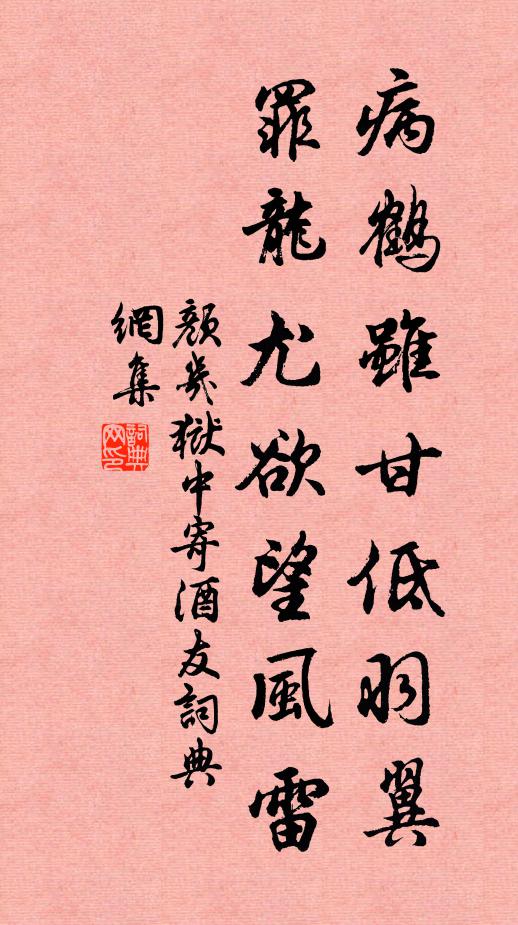 病鶴雖甘低羽翼
罪龍尤欲望風雷
顏幾獄中寄酒友詞典
網集
詞典
网印